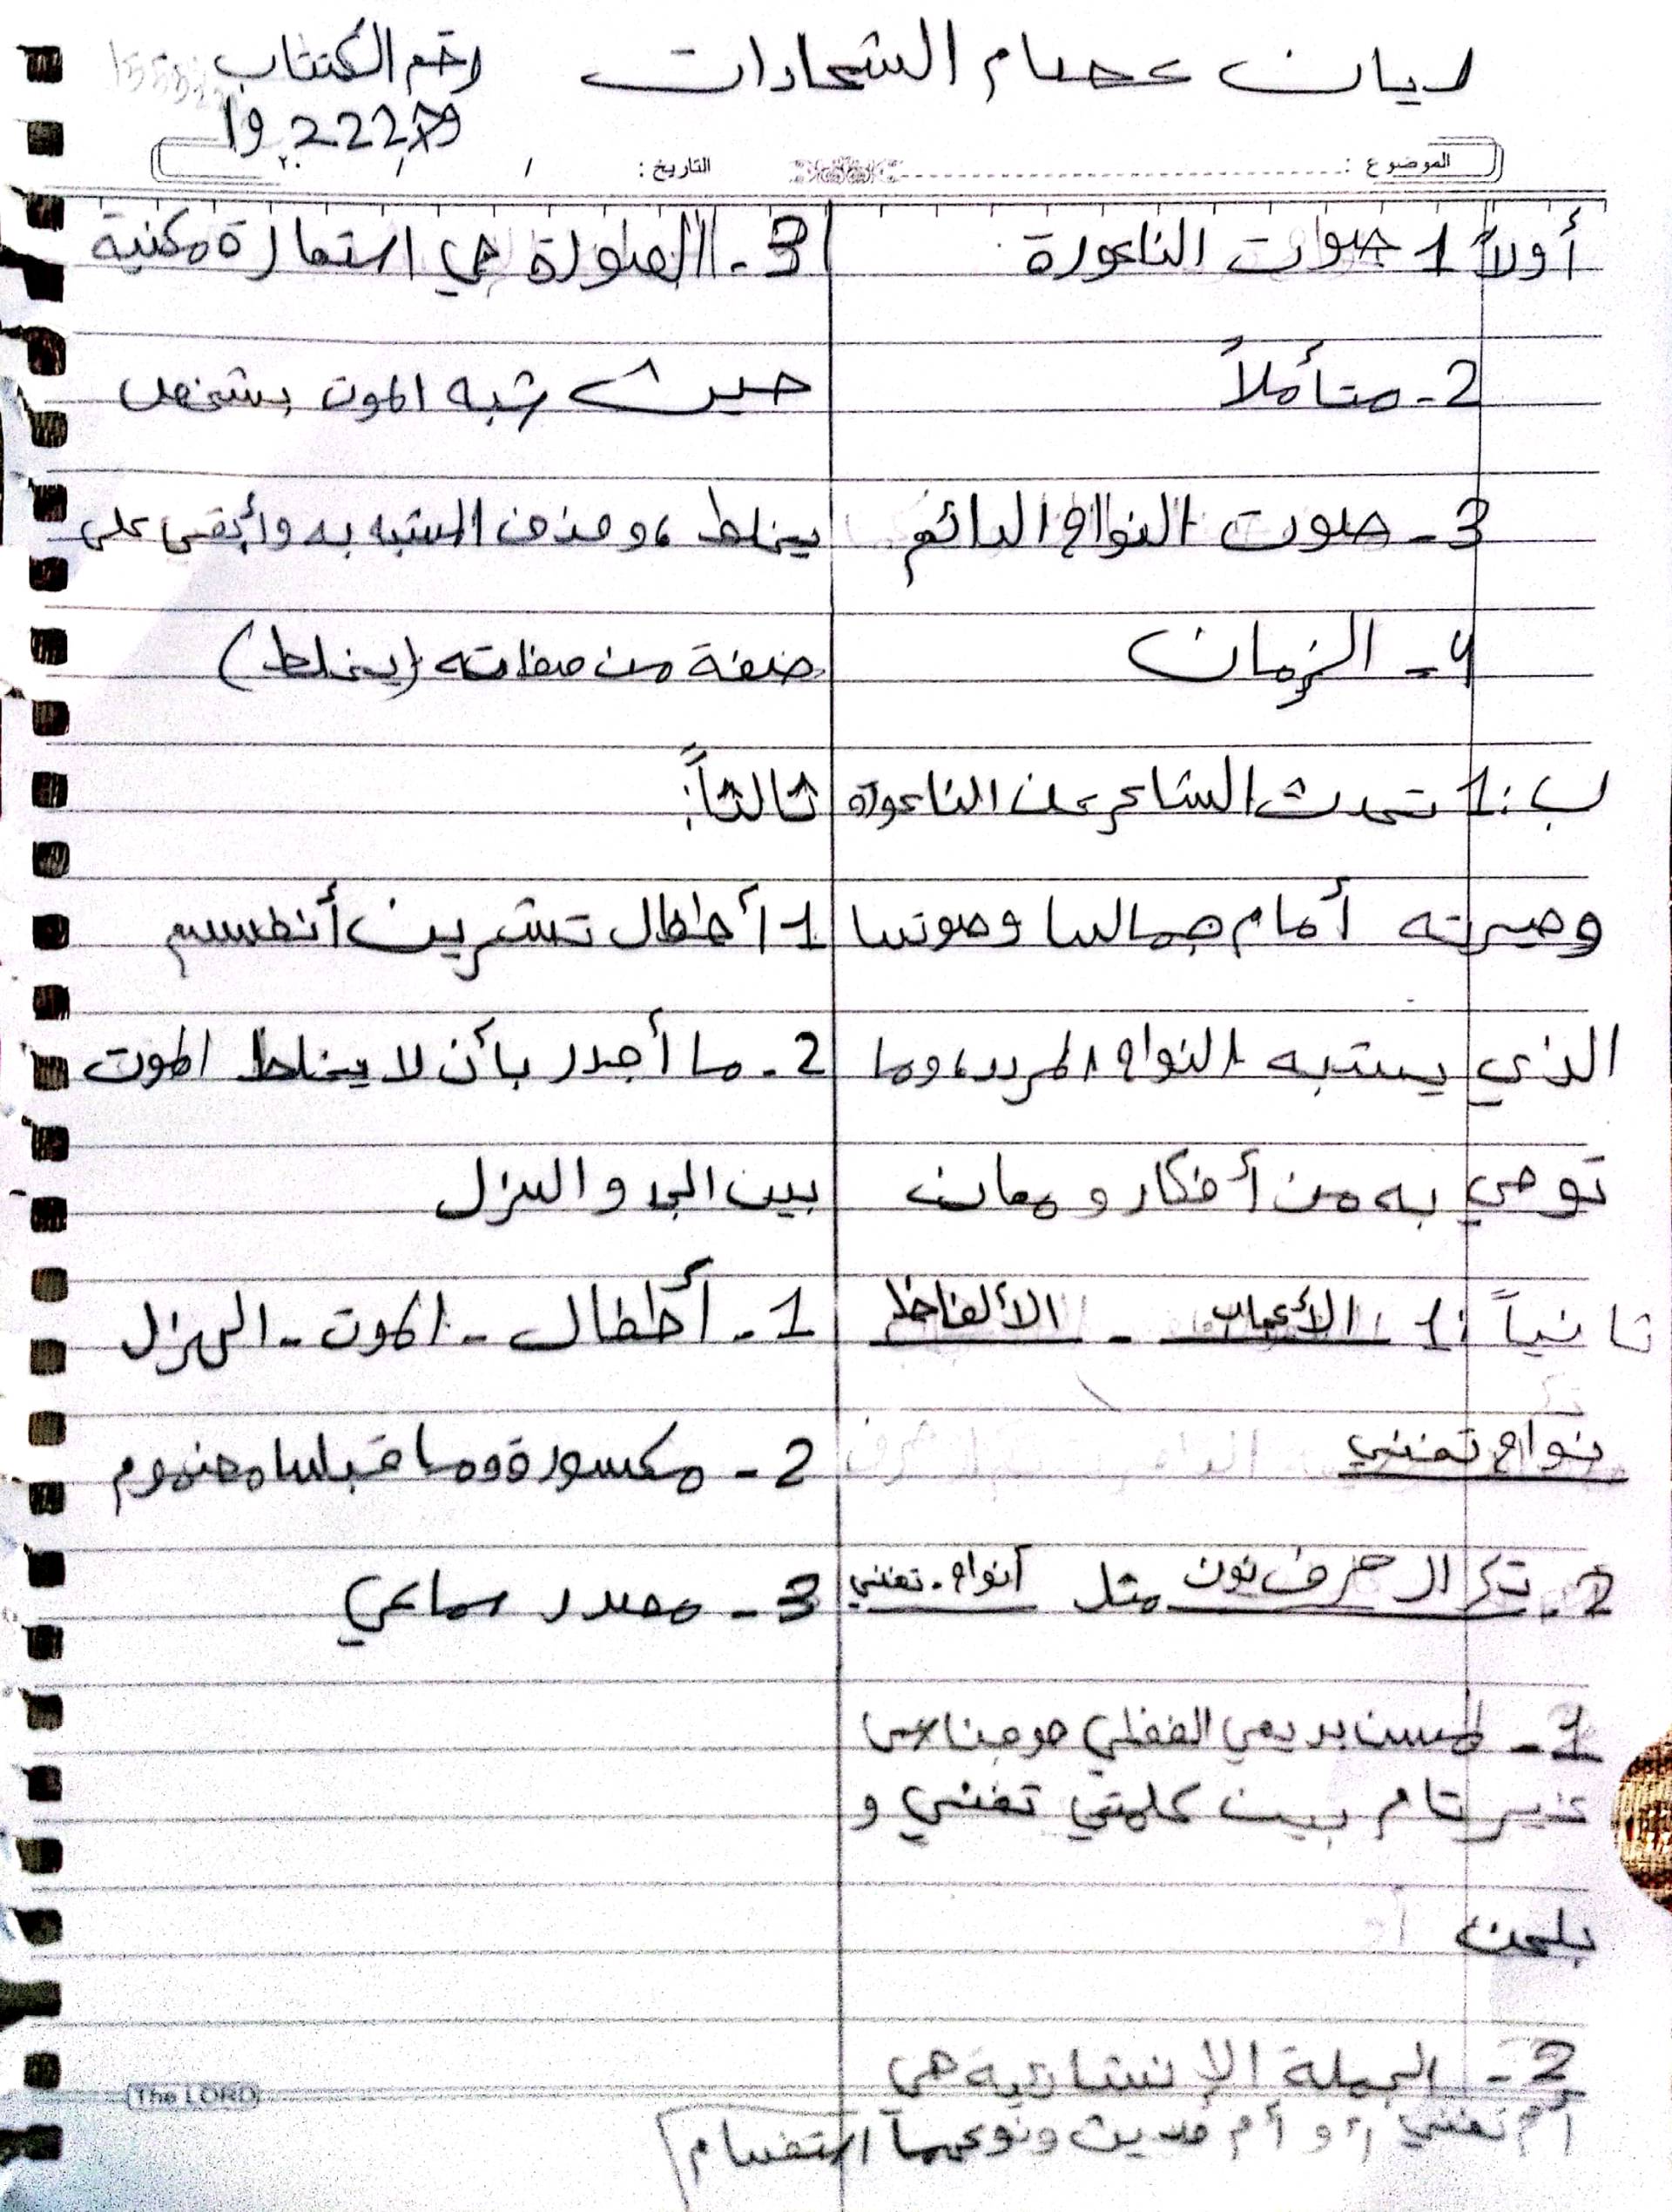 ليان عصام الشحادات
رقم الكتاب
الموضوع :
التاريخ : / /
أولاً 1 صوت الناعورة
2 - متأملاً
3 - صوت النواح الدائم
4 - الزمان
ب : 1 تحدث الشاعر عن الناعورة
وحيرته أمام جمالها وصوتها
الذي يشبه النواح المردد، وما
توحي به من أفكار و معان
ثانياً : 1 - الألفاظ
نواح تغني
2 - تكرار حرف نون مثل أنواح - تغني
1 - المحسن بديعي اللفظي هو جناس
غير تام بين كلمتي تغني و
بلحن
2 - الجملة الإنشائية هي
أم تغني أو أم حديث ونوعها استفهام
3 - الصورة هي استعارة مكنية
حيث شبه الموت بشخص
يخلط، وحذف المشبه به وأبقى على
صفة من صفاته (يخلط)
ثالثاً :
1 - أطفال تشرين أنفسهم
2 - ما أجدر بأن لا يخلط الموت
بين الجد و الهزل
1 - أطفال - الموت - الهزل
2 - مكسورة وما قبلها مضموم
3 - مصدر سماعي
The LORD